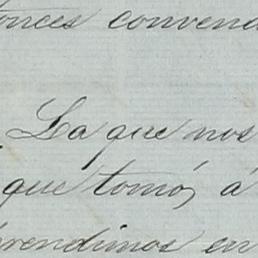 onces convend
La que nos
que tomó, á
rendimos en